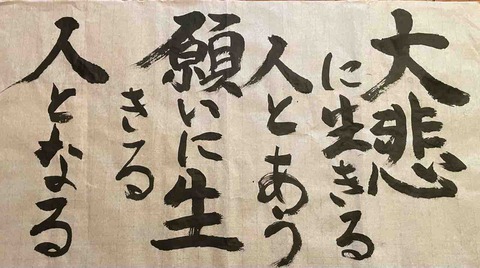 大悲
に生きる
人とあう
願いに生
きる
人となる